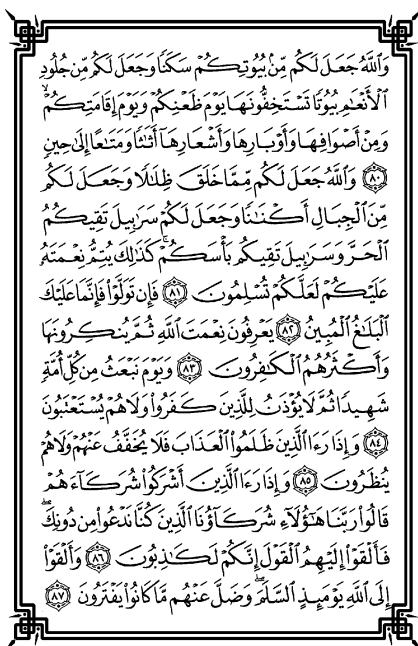 وَٱللَّهُ جَعَلَ لَكُم مِّنۢ بُيُوتِكُمۡ سَكَنٗا وَجَعَلَ لَكُم مِّن جُلُودِ
ٱلۡأَنۡعَٰمِ بُيُوتٗا تَسۡتَخِفُّونَهَا يَوۡمَ ظَعۡنِكُمۡ وَيَوۡمَ إِقَامَتِكُمۡۙ
وَمِنۡ أَصۡوَافِهَا وَأَوۡبَارِهَا وَأَشۡعَارِهَآ أَثَٰثٗا وَمَتَٰعًا إِلَىٰ حِينٖ
٨٠ وَٱللَّهُ جَعَلَ لَكُم مِّمَّا خَلَقَ ظِلَٰلٗا وَجَعَلَ لَكُم
مِّنَ ٱلۡجِبَالِ أَكۡنَٰنٗا وَجَعَلَ لَكُمۡ سَرَٰبِيلَ تَقِيكُمُ
ٱلۡحَرَّ وَسَرَٰبِيلَ تَقِيكُم بَأۡسَكُمۡۚ كَذَٰلِكَ يُتِمُّ نِعۡمَتَهُۥ
عَلَيۡكُمۡ لَعَلَّكُمۡ تُسۡلِمُونَ ٨١ فَإِن تَوَلَّوۡاْ فَإِنَّمَا عَلَيۡكَ
ٱلۡبَلَٰغُ ٱلۡمُبِينُ ٨٢ يَعۡرِفُونَ نِعۡمَتَ ٱللَّهِ ثُمَّ يُنكِرُونَهَا
وَأَكۡثَرُهُمُ ٱلۡكَٰفِرُونَ ٨٣ وَيَوۡمَ نَبۡعَثُ مِن كُلِّ أُمَّةٖ
شَهِيدٗا ثُمَّ لَا يُؤۡذَنُ لِلَّذِينَ كَفَرُواْ وَلَا هُمۡ يُسۡتَعۡتَبُونَ
٨٤ وَإِذَا رَءَا ٱلَّذِينَ ظَلَمُواْ ٱلۡعَذَابَ فَلَا يُخَفَّفُ عَنۡهُمۡ وَلَا هُمۡ
يُنظَرُونَ ٨٥ وَإِذَا رَءَا ٱلَّذِينَ أَشۡرَكُواْ شُرَكَآءَهُمۡ
قَالُواْ رَبَّنَا هَٰٓؤُلَآءِ شُرَكَآؤُنَا ٱلَّذِينَ كُنَّا نَدۡعُواْ مِن دُونِكَۖ
فَأَلۡقَوۡاْ إِلَيۡهِمُ ٱلۡقَوۡلَ إِنَّكُمۡ لَكَٰذِبُونَ ٨٦ وَأَلۡقَوۡاْ
إِلَى ٱللَّهِ يَوۡمَئِذٍ ٱلسَّلَمَۖ وَضَلَّ عَنۡهُم مَّا كَانُواْ يَفۡتَرُونَ ٨٧